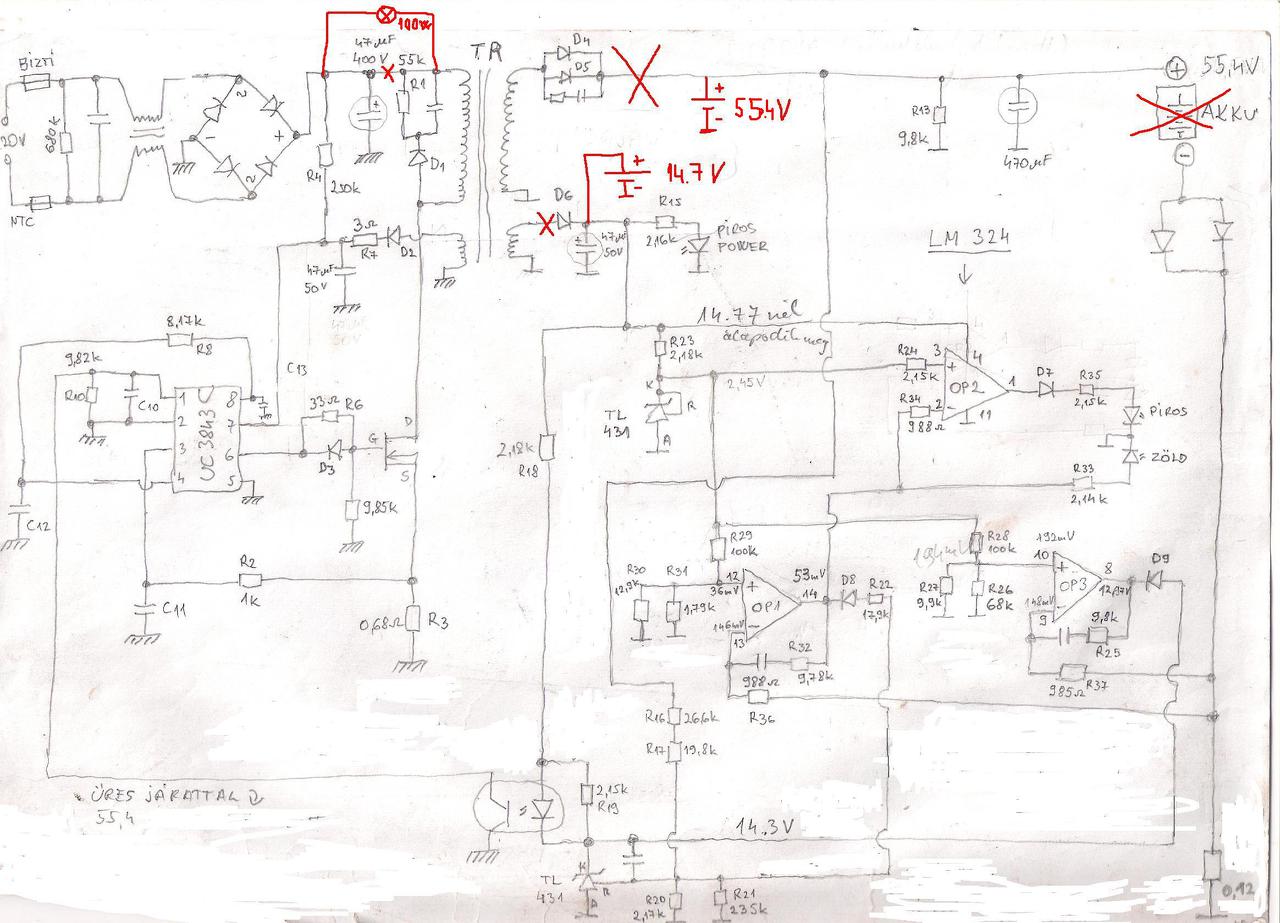 100W
47µF
400V
55k
R1
TR
D4
D5
55.4V
+
55,4V
AKKU
-
BIZTI
20V
680k
NTC
R4
250k
D1
D6
14.7V
R15
2,16k
PIROS
POWER
47µF
50V
3Ω
R7
D2
47µF
50V
R13
9,8k
470µF
LM 324
8,17k
R8
9,82k
R10
C10
C13
UC 3843
1
2
3
4
8
7
6
5
33Ω
R6
D3
G
D
S
9,85k
C12
C11
R2
1K
0,68Ω
R3
14.77 nél
R23
2,18k
K
R
A
TL
431
2,45V
2,18k
R18
R24
2,15k
R34
988Ω
3
2
4
11
1
OP2
D7
R35
2,15k
PIROS
ZÖLD
R33
2,14k
R29
100k
R30
12,9k
R31
1,79k
12
36mV
146mV
13
OP1
53mV
14
D8
R22
17,9k
988Ω
R32
9,78k
R36
R28
100k
R27
9,9k
R26
68k
192mV
10
148mV
9
OP3
8
12,97V
D9
9,8k
R25
985Ω
R37
R16
26,6k
R17
19,8k
ÜRES JÁRATTAL
55,4
2,15k
R19
14.3V
TL
431
K
R
A
R20
2,17k
R21
235k
0.12